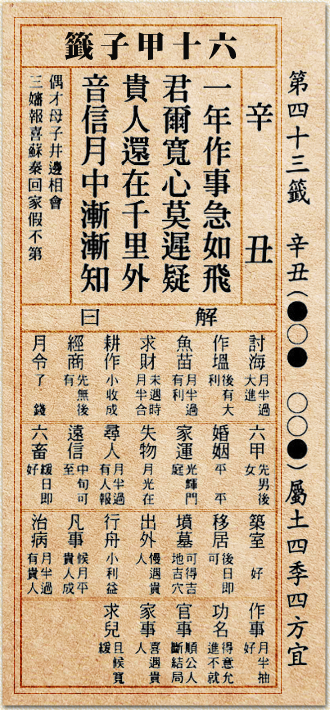 第四十三籤 辛丑(●○● ○○●)屬土四季四方宜
六十甲子籤
辛丑
一年作事急如飛
君爾寬心莫遲疑
貴人還在千里外
音信月中漸漸知
偶才母子井邊相會
三嬸報喜蘇秦回家假不第
解曰
討海 月半過大進
作塭 後有大利
魚苗 月半過有利
求財 未過時月半合
耕作 小收成
經商 先無後有
月令 了錢
六甲 先男後女
婚姻 平平
家運 光輝門庭
失物 月光在
尋人 月半過有人報
遠信 中旬可至
六畜 緩日即好
築室 好
移居 後日即可
墳墓 可得吉地吉穴
出外 慢遇貴人
行舟 小利益
凡事 候月平貴人成
治病 月半過有貴人
作事 月半抽好
功名 得意允進不就
官事 順公人斷結局
家事 喜遇貴人
求兒 日候寬緩